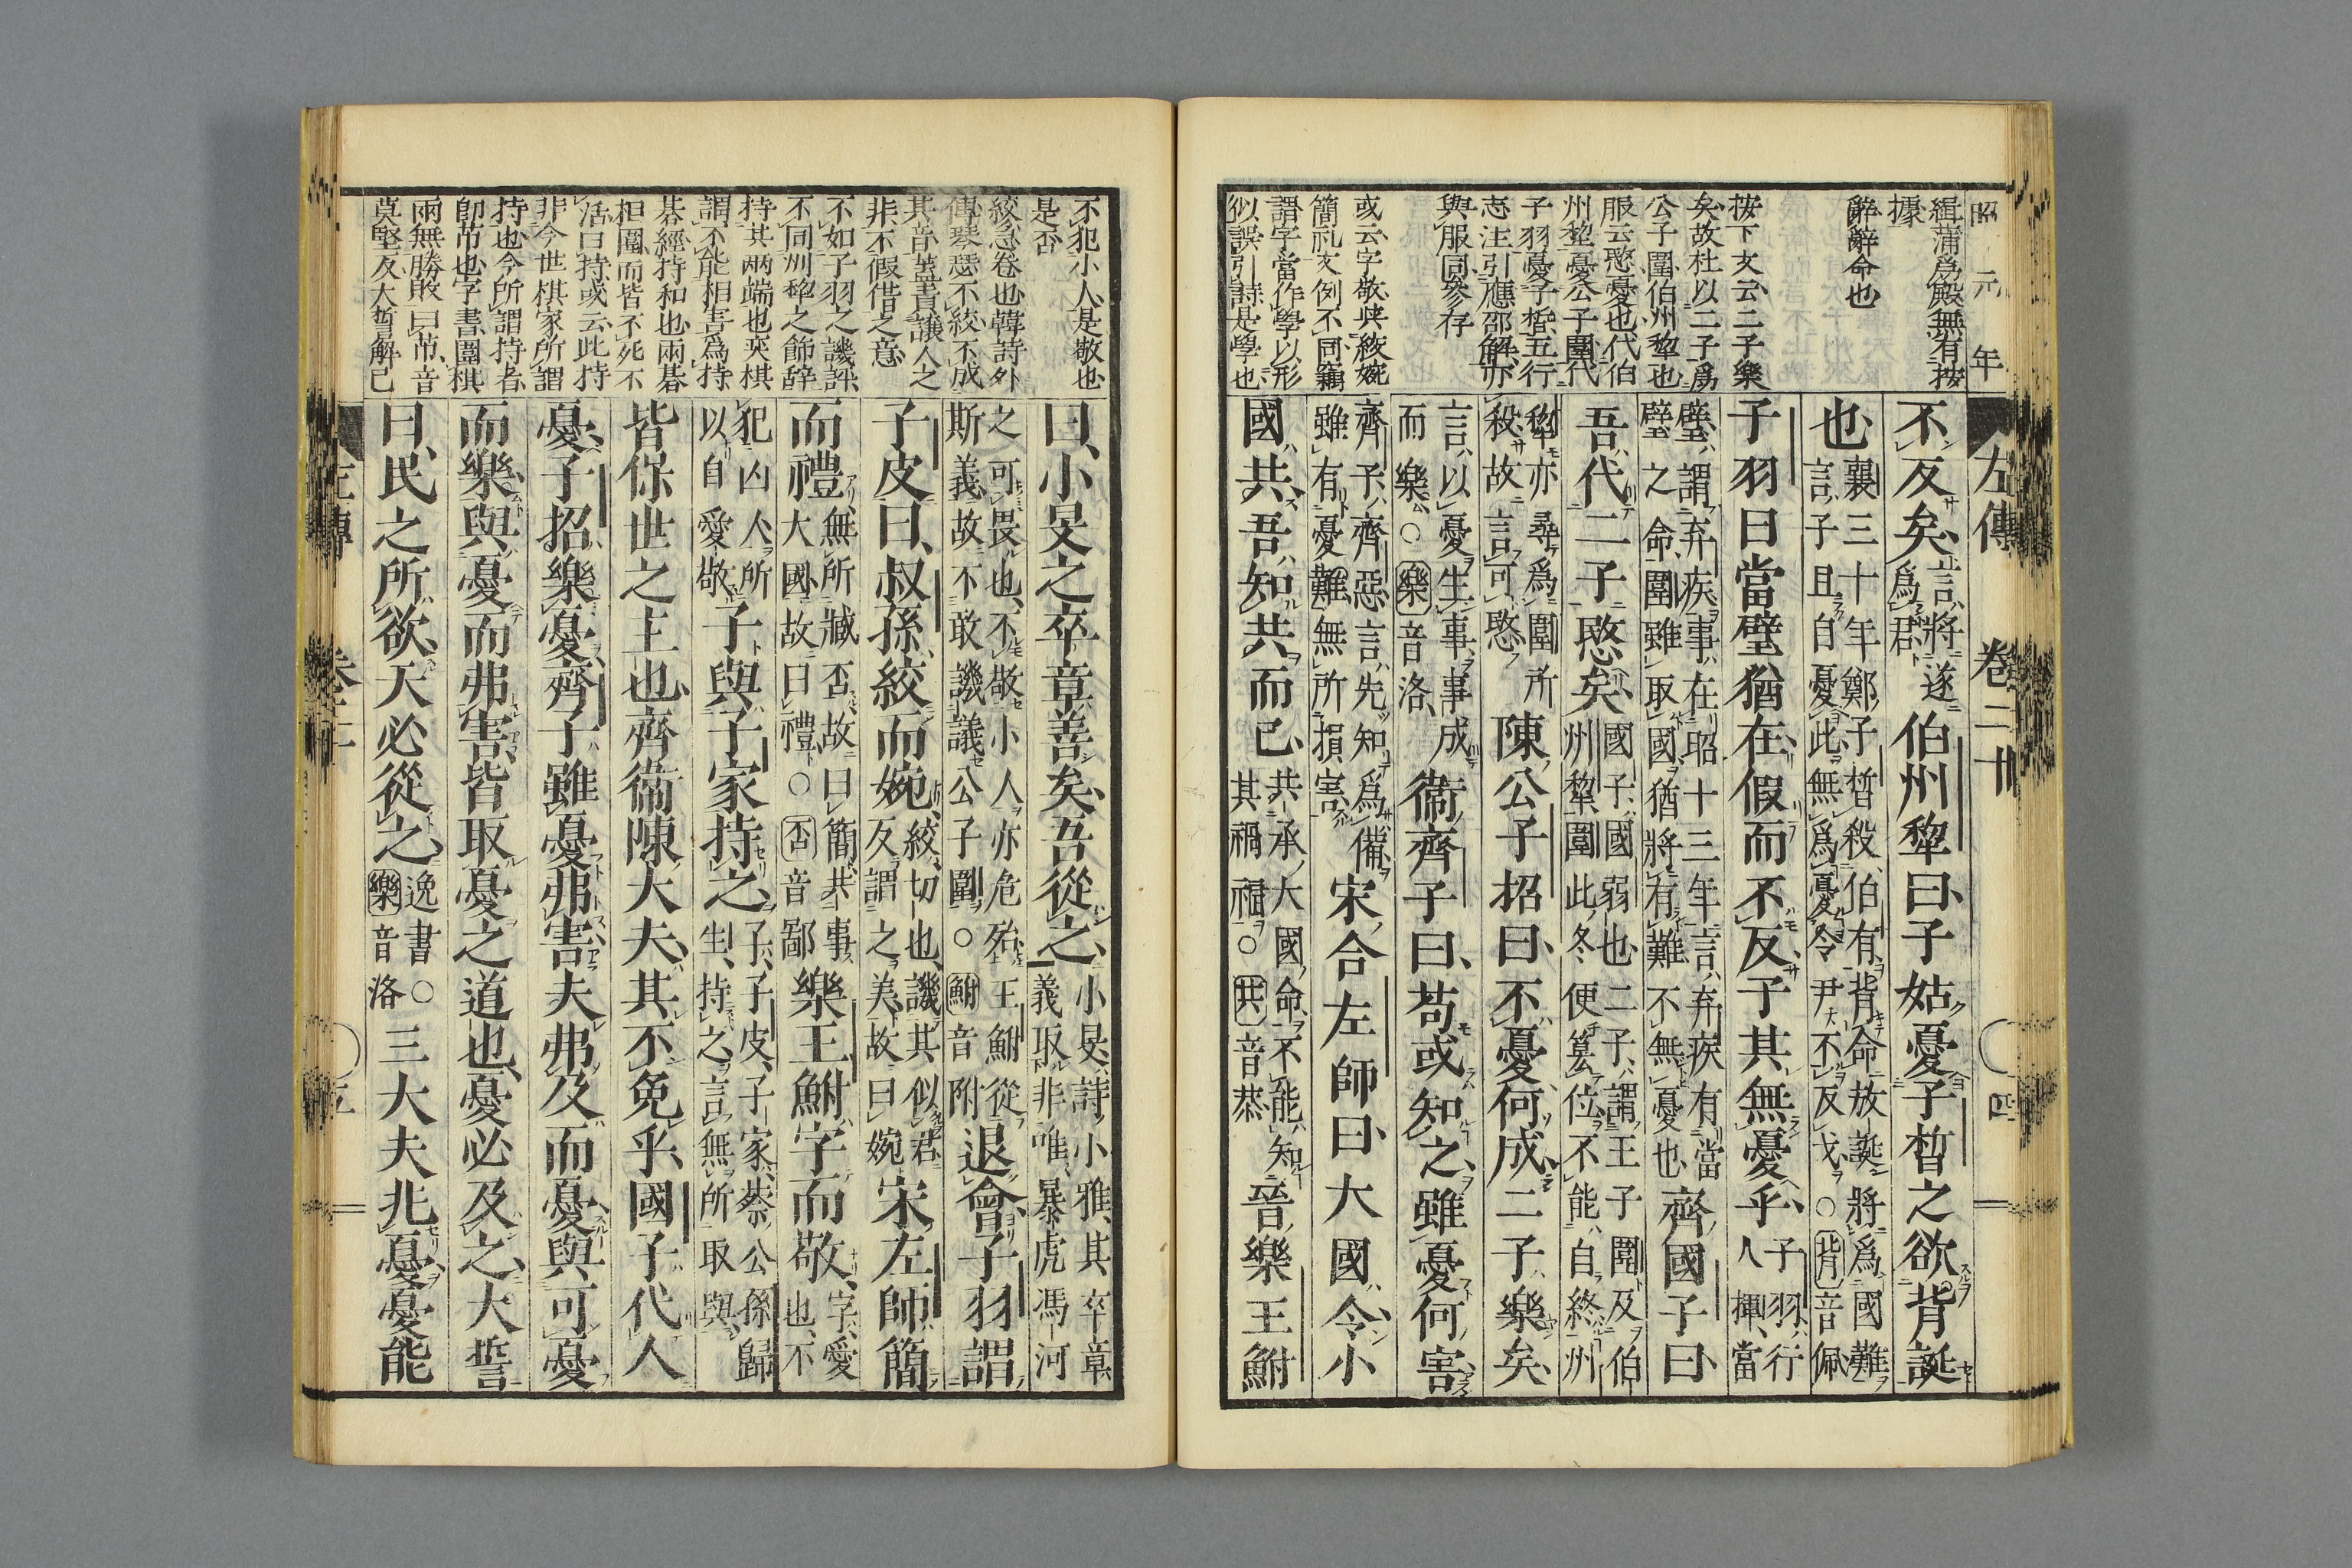 昭元年
緝蒲爲殿無有按
據
辭辭命也
按下文云二子樂
矣故杜以二子爲
公子圍伯州犂也
服云愍憂也代伯
州犂憂公子圍代
子羽憂子晳五行
志注引應邵解亦
與服同參存
或云字敬與絞婉
簡礼文例不同竊
謂字當作學以形
似誤引詩是學也
左傳 卷二十 四
不反矣言將遂爲君伯州犂曰子姑憂子晳之欲背誕
也襄三十年鄭子晳殺伯有背命放誕將爲國難言子且自憂此無爲憂令尹不反戈○背音佩
子羽曰當璧猶在假而不反子其無憂乎子羽行人揮當
璧謂弃疾事在昭十三年言弃疾有當璧之命圍雖取國猶將有難不無憂也齊國子曰
吾代二子愍矣國子國弱也二子謂王子圍及伯州犂圍此冬便簒位不能自終州
犂亦尋爲圍所殺故言可愍陳公子招曰不憂何成二子樂矣
言以憂生事事成而樂○樂音洛衞齊子曰苟或知之雖憂何害
齊子齊惡言先知爲備雖有憂難無所損害宋合左師曰大國令小
國共吾知共而已共承大國命不能知其禍福○共音恭晉樂王鮒
不犯小人是敬也
是否
絞急卷也韓詩外
傳琴瑟不絞不成
其音葢責讓人之
非不假借之意
不如子羽之譏評
不同州犂之飾辭
持其兩端也奕棋
謂不能相害爲持
棊經持和也兩棊
相圍而皆不死不
活曰持或云此持
非今世棋家所謂
持也今所謂持者
卽芇也字書圍棋
兩無勝敗曰芇音
莫堅反大誓解已
曰小旻之卒章善矣吾從之小旻詩小雅其卒章義取非唯暴虎馮河
之可畏也不敬小人亦危殆王鮒從斯義故不敢譏議公子圍○鮒音附退會子羽謂
子皮曰叔孫絞而婉絞切也譏其似君反謂之美故曰婉宋左師簡
而禮無所臧否故曰簡共事大國故曰禮○否音鄙樂王鮒字而敬字愛也不
犯凶人所以自愛敬子與子家持之子子皮子家蔡公孫歸生持之言無所取與
皆保世之主也齊衞陳大夫其不免乎國子代人
憂子招樂憂齊子雖憂弗害夫弗及而憂與可憂
而樂與憂而弗害皆取憂之道也憂必及之大誓
曰民之所欲天必從之逸書○樂音洛三大夫兆憂憂能